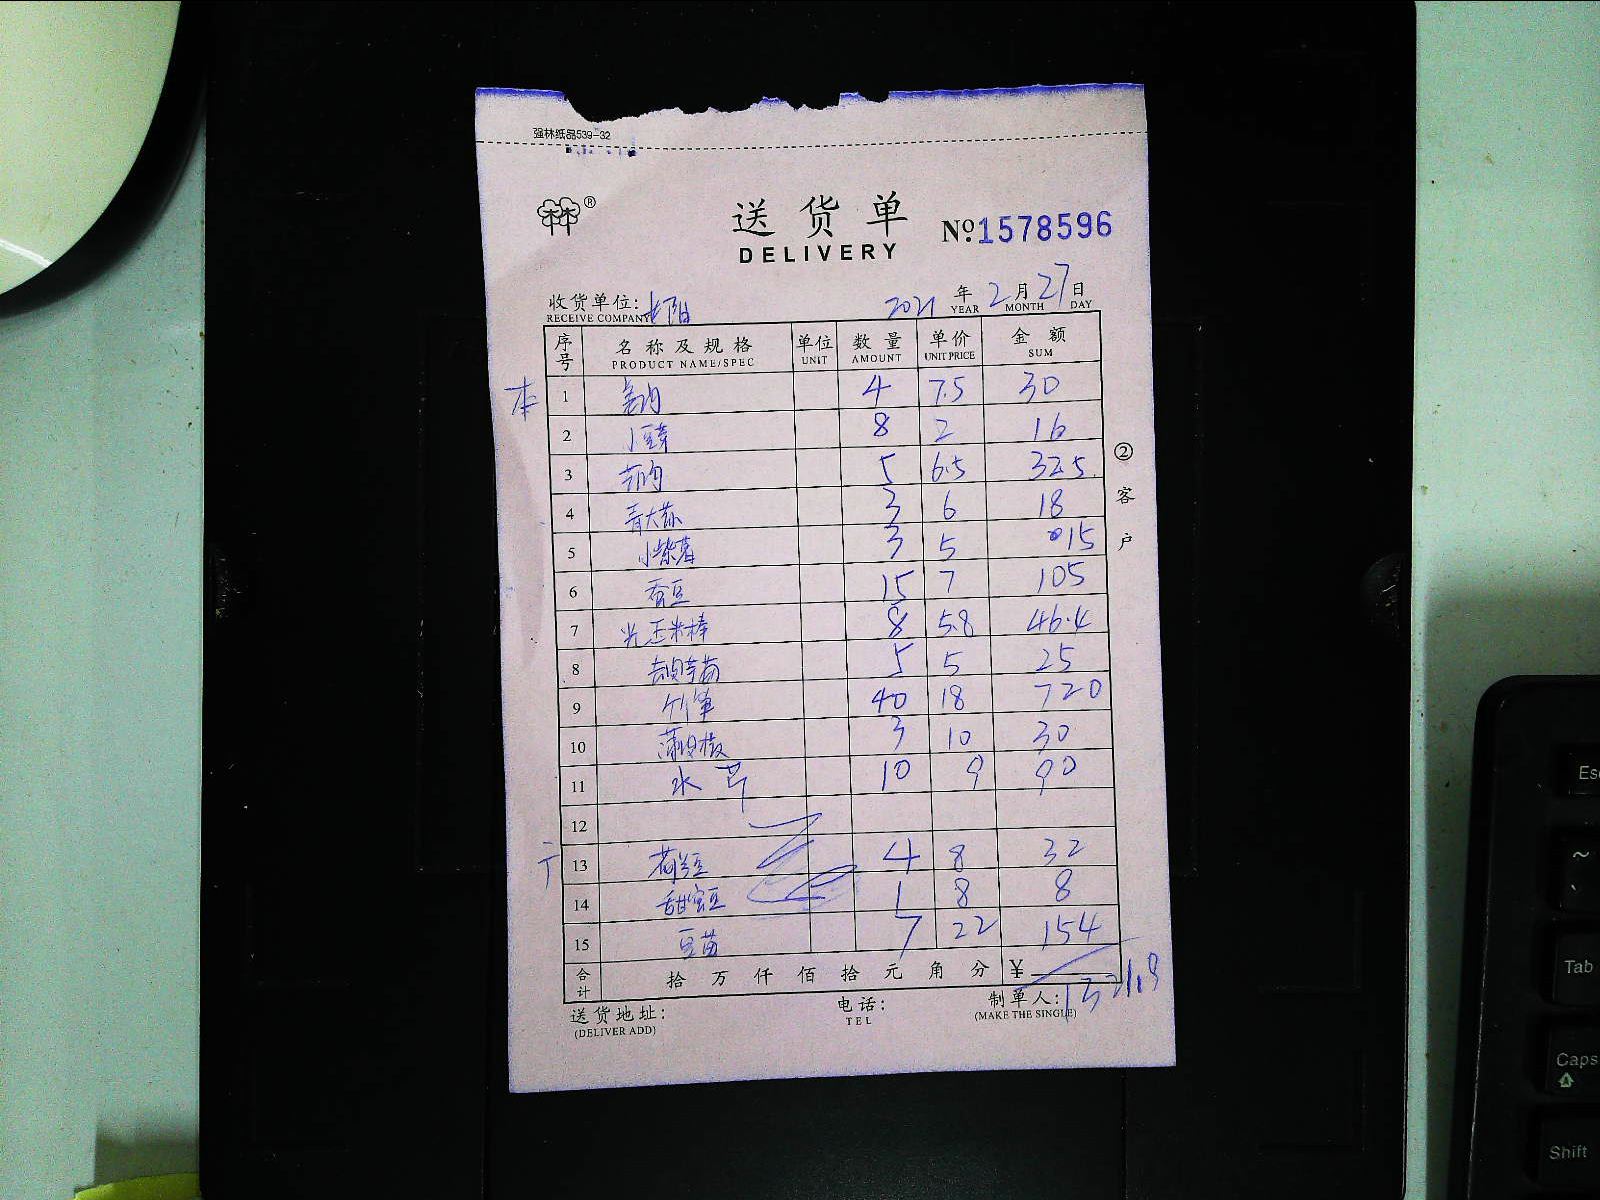 强林纸品539-32
林林®
送货单
DELIVERY
No.1578596
收货单位:
RECEIVE COMPANY
2021年2月27日
YEAR MONTH DAY
序号 名称及规格 单位 数量 单价 金额
PRODUCT NAME/SPEC UNIT AMOUNT UNIT PRICE SUM
本 1 4 7.5 30
2 小豆芽 8 2 16
3 5 6.5 32.5
4 青大蒜 3 6 18
5 小紫薯 3 5 15
6 蚕豆 15 7 105
7 光玉米棒 8 5.8 46.4
8 5 5 25
9 竹笋 40 18 720
10 3 10 30
11 水芹 10 9 90
12
13 荷兰豆 4 8 32
14 甜蜜豆 1 8 8
15 豆苗 7 22 154
合计 拾万仟佰拾元角分 ¥
1321.9
送货地址:
(DELIVER ADD)
电话:
TEL
制单人:
(MAKE THE SINGLE)
②客户
Esc
~
Tab
Caps
Shift